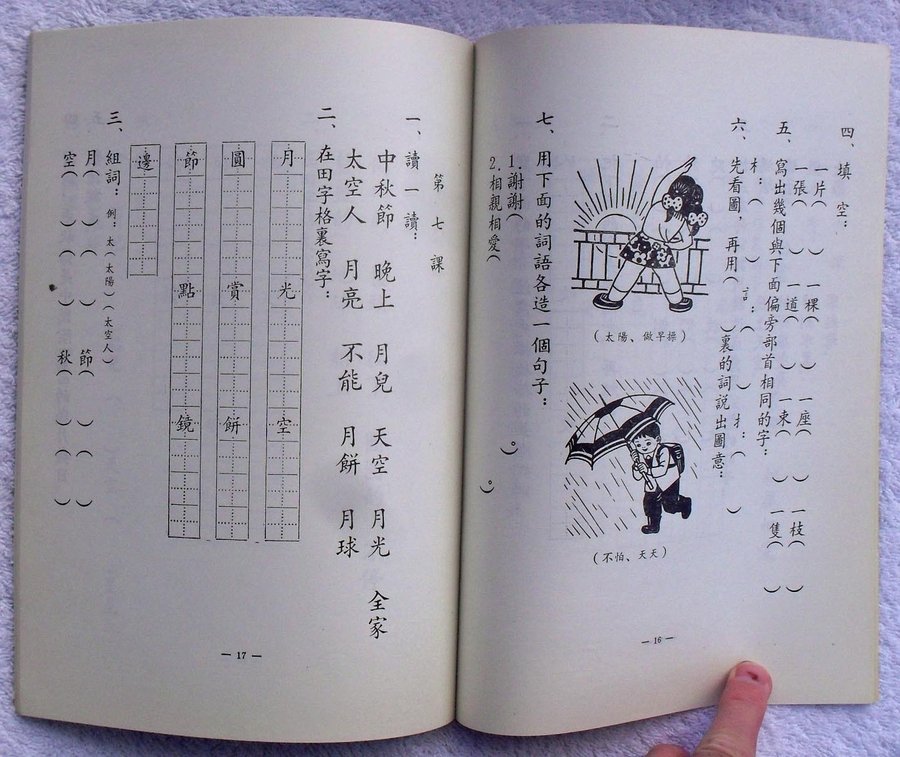 四、填空：
一片（　）一棵（　）一座（　）一枝（　）
一張（　）一道（　）一束（　）一隻（　）
五、寫出幾個與下面偏旁部首相同的字：
木：（　）　訁：（　）　扌：（　）
六、先看圖，再用（　）裏的詞說出圖意：
（太陽、做早操）
（不怕、天天）
七、用下面的詞語各造一個句子：
1.謝謝（　）。
2.相親相愛（　）。
— 16 —
第七課
一、讀一讀：
中秋節　晚上　月兒　天空　月光　全家
太空人　月亮　不能　月餅　月球
二、在田字格裏寫字：
月　光　空
圓　賞　餅
節　點　鏡
邊
三、組詞：例：太（太陽）（太空人）
月（　）（　）節（　）（　）
空（　）（　）秋（　）（　）
— 17 —